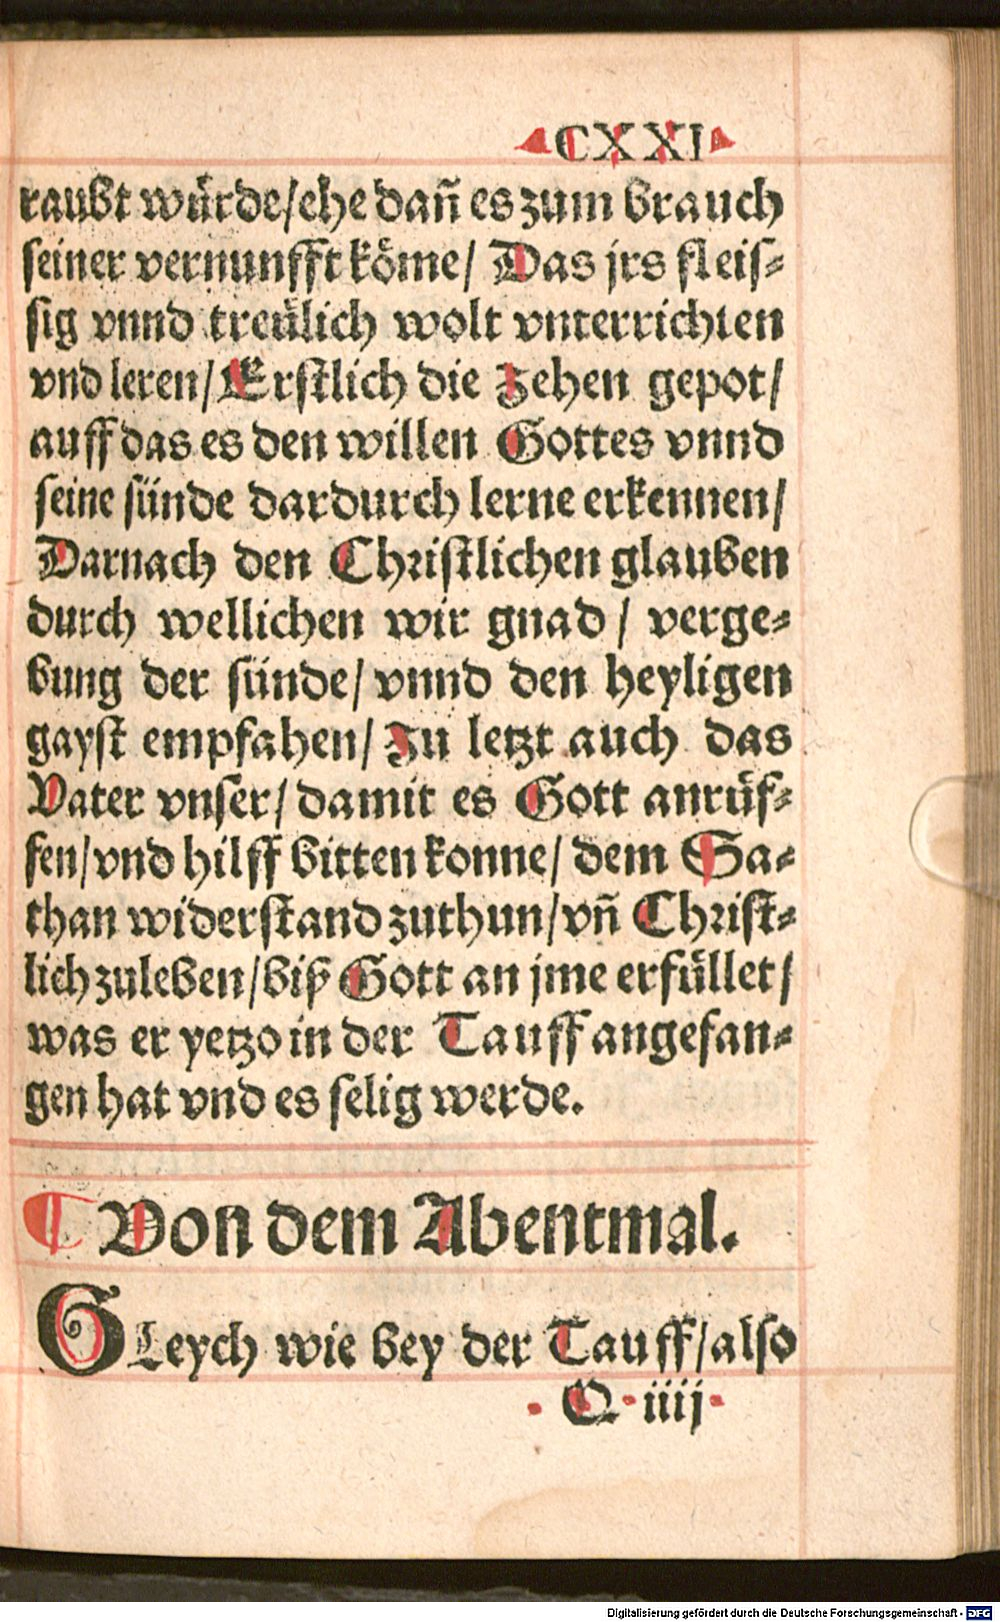 CXXI
raubt würde/ehe dañ es zum brauch
seiner vernunfft köme/ Das jrs fleis-
sig vnnd treülich wolt vnterrichten
vnd leren/ Erstlich die zehen gepot/
auff das es den willen Gottes vnnd
seine sünde dardurch lerne erkennen/
Darnach den Christlichen glauben
durch wellichen wir gnad / verge-
bung der sünde/ vnnd den heyligen
gayst empfahen/ Zu letzt auch das
Vater vnser/ damit es Gott anrüf-
fen/vnd hilff bitten konne/ dem Sa-
than widerstand zuthun/vñ Christ-
lich zuleben/biß Gott an jme erfüllet/
was er yetzo in der Tauff angefan-
gen hat vnd es selig werde.
Von dem Abentmal.
GLeych wie bey der Tauff/also
Q iiij
Digitalisierung gefördert durch die Deutsche Forschungsgemeinschaft - DFG